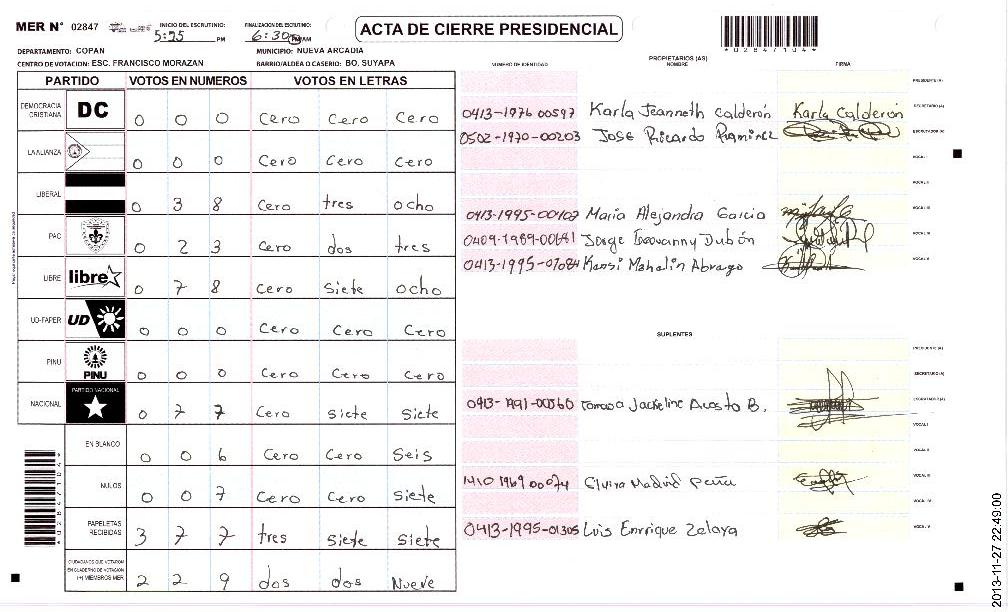 MER N° 02847 INICIO DEL ESCRUTINIO: 5:25 PM FINALIZACION DEL ESCRUTINIO: 6:30 PM/AM ACTA DE CIERRE PRESIDENCIAL *02847104*
DEPARTAMENTO: COPAN MUNICIPIO: NUEVA ARCADIA
CENTRO DE VOTACION: ESC. FRANCISCO MORAZAN BARRIO/ALDEA O CASERIO: BO. SUYAPA
PARTIDO VOTOS EN NUMEROS VOTOS EN LETRAS
DEMOCRACIA CRISTIANA DC 0 0 0 Cero Cero Cero
LA ALIANZA 0 0 0 Cero Cero Cero
LIBERAL 0 3 8 Cero tres ocho
PAC 0 2 3 Cero dos tres
LIBRE libre 0 7 8 Cero Siete ocho
UD-FAPER UD 0 0 0 Cero Cero Cero
PINU PINU 0 0 0 Cero Cero Cero
NACIONAL PARTIDO NACIONAL 0 7 7 Cero Siete Siete
EN BLANCO 0 0 6 Cero Cero Seis
NULOS 0 0 7 Cero Cero Siete
PAPELETAS RECIBIDAS 3 7 7 tres Siete Siete
CIUDADANOS QUE VOTARON EN CUADERNO DE VOTACION (+) MIEMBROS MER 2 2 9 dos dos Nueve
NUMERO DE IDENTIDAD PROPIETARIOS (AS) NOMBRE FIRMA
PRESIDENTE (A)
0413-1976 00597 Karla Jeanneth Calderón Karla Calderón SECRETARIO (A)
0502-1970-00203 Jose Ricardo Ramirez ESCRUTADOR (A)
VOCAL I
VOCAL II
Maria Alejandra Garcia VOCAL III
Jorge Geovanny Dubón
VOCAL V
SUPLENTES
PRESIDENTE (A)
SECRETARIO (A)
Jackeline B. ESCRUTADOR (A)
VOCAL I
VOCAL II
Elvira Madrid Peña VOCAL III
VOCAL IV
0413-1995-01305 Luis Enrrique Zelaya VOCAL V
*02847104*
2013-11-27 22:49:00